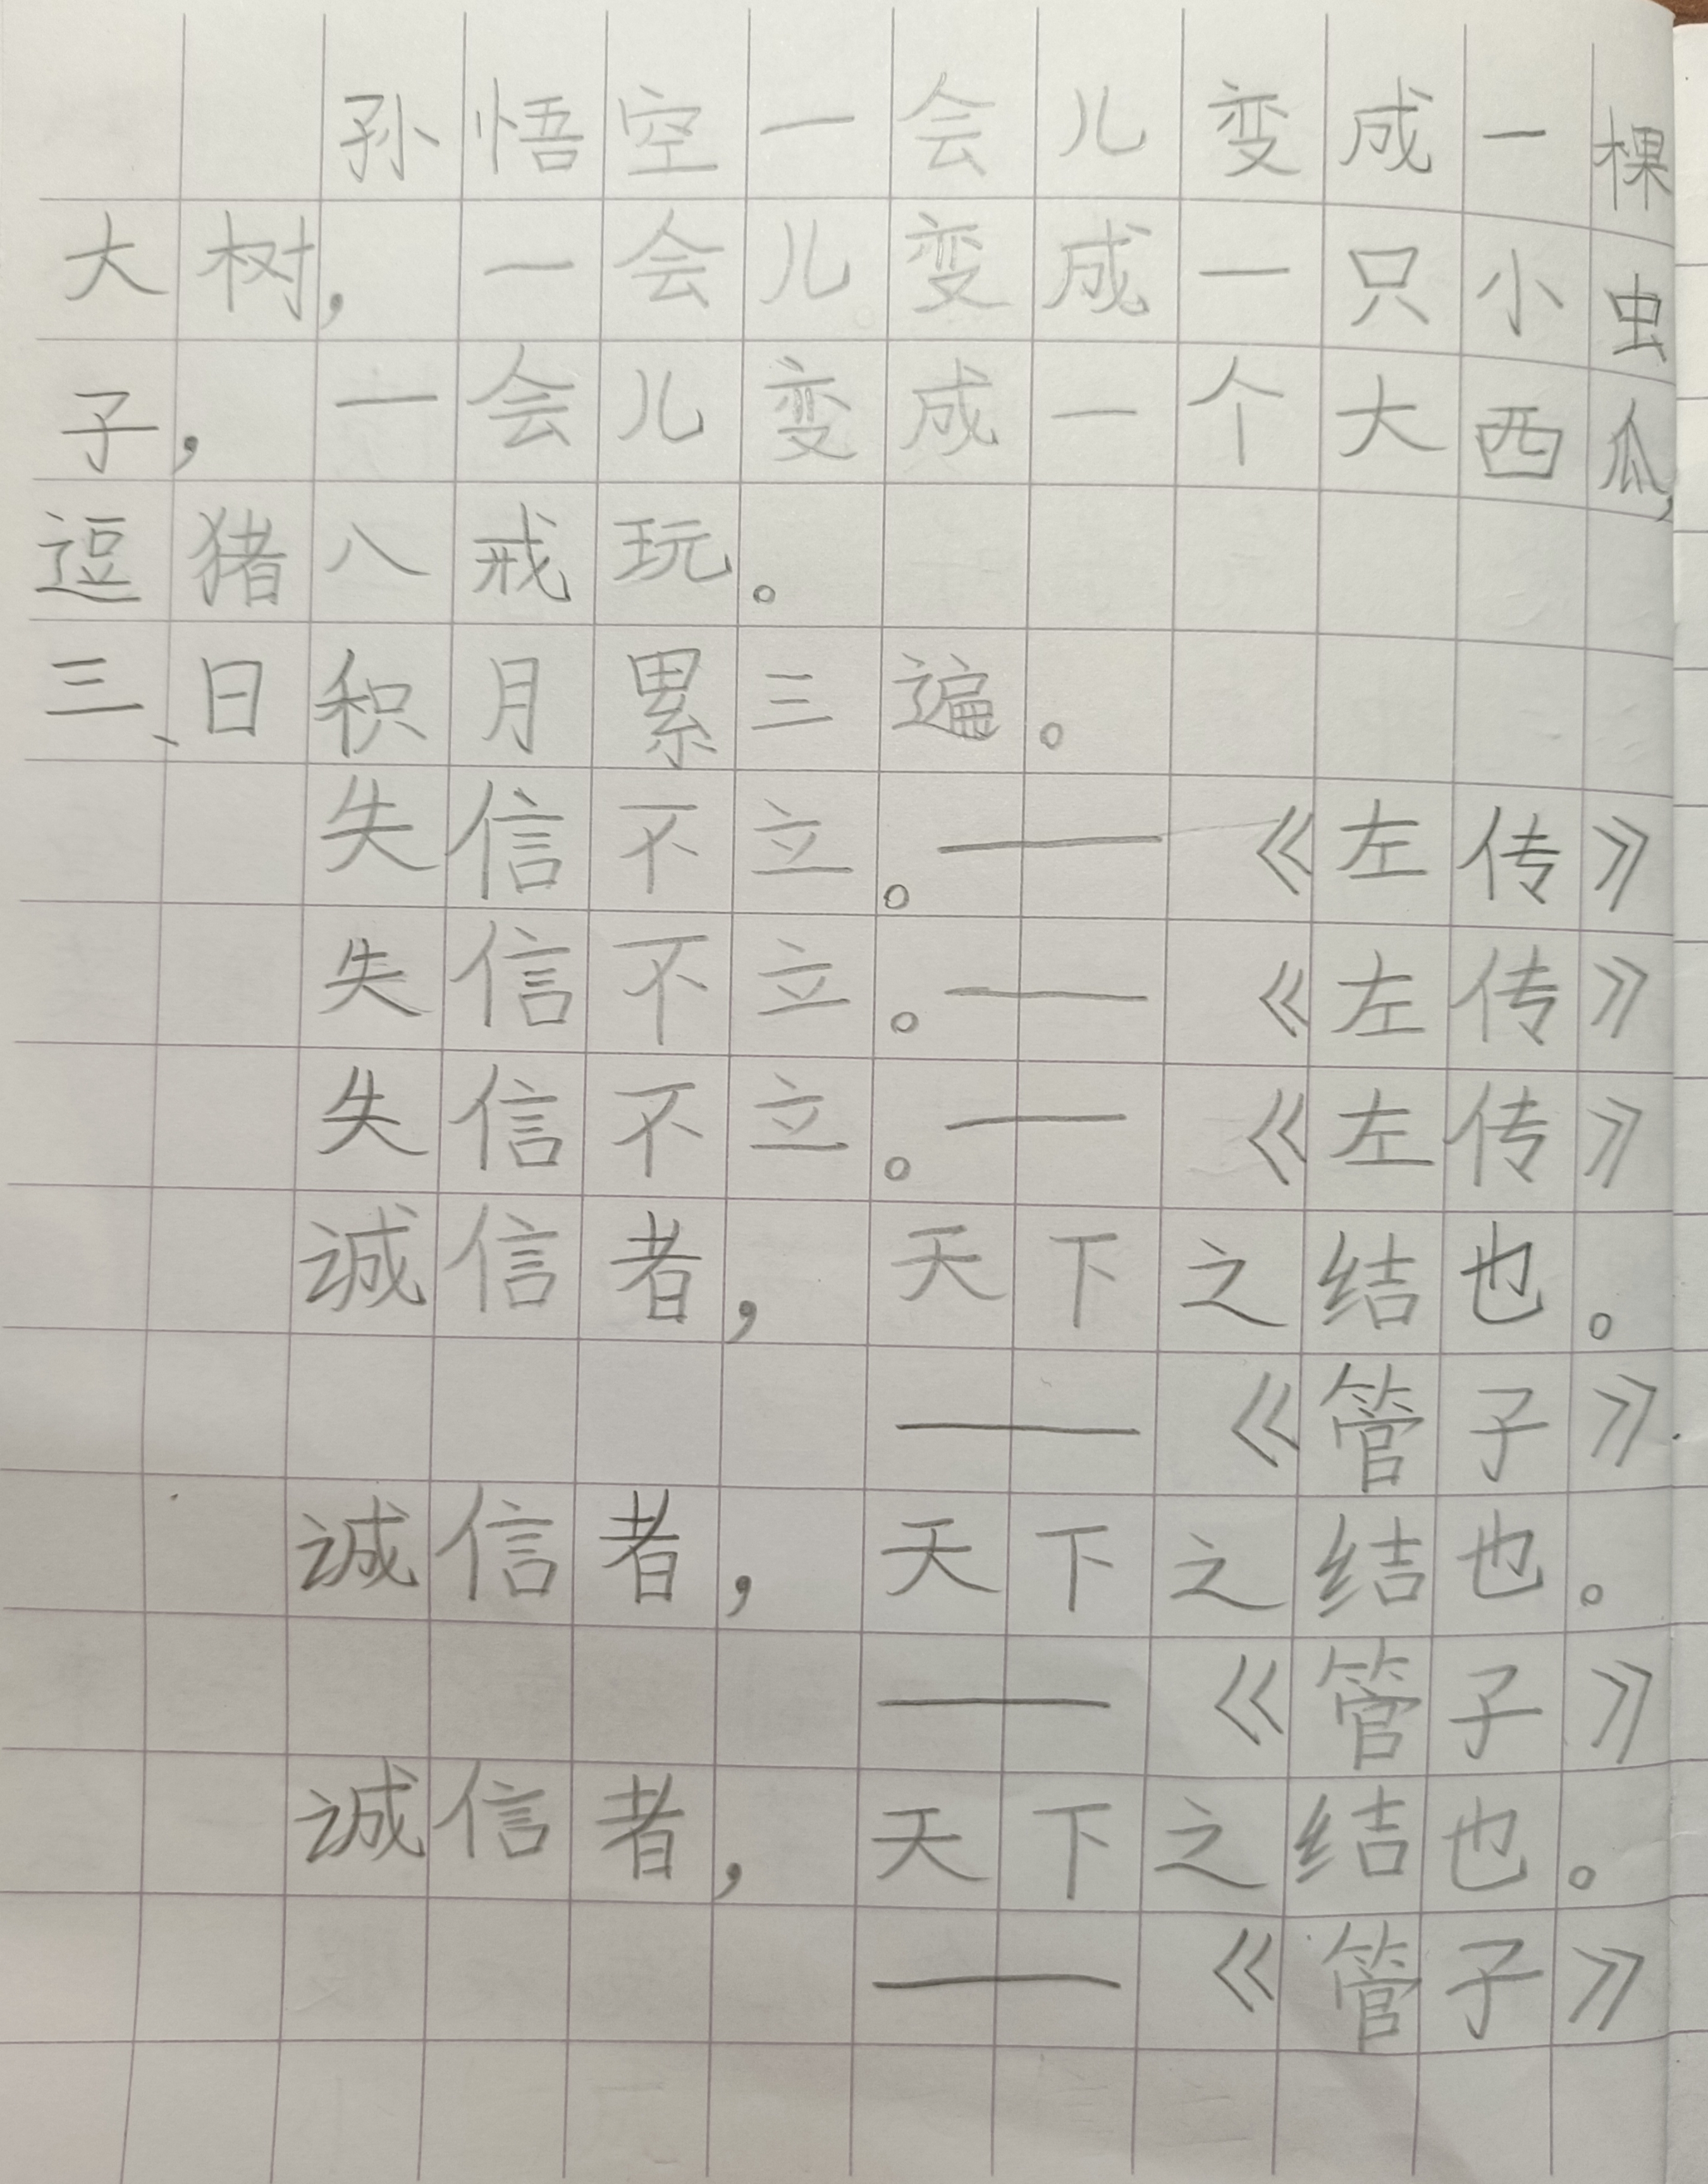 孙悟空一会儿变成一棵
大树，一会儿变成一只小虫
子，一会儿变成一个大西瓜，
逗猪八戒玩。
三、日积月累三遍。
失信不立。——《左传》
失信不立。——《左传》
失信不立。——《左传》
诚信者，天下之结也。
——《管子》
诚信者，天下之结也。
——《管子》
诚信者，天下之结也。
——《管子》